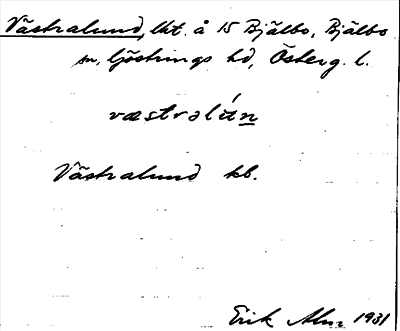 Västralund, lht. å 15 Bjälbo, Bjälbo
sn, Göstrings hd, Österg. l.
västralún
Västralund kb.
Erik Alm 1931